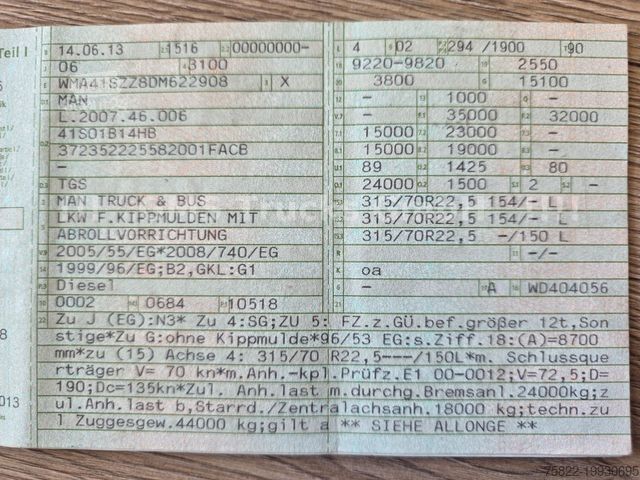 Teil I
14.06.13 1516 00000000- 4 02 294 /1900 90
06 3100 9220-9820 2550
WMA41SZZ8DM622908 X 3800 15100
MAN - 1000 -
L.2007.46.006 - 35000 32000
41S01B14HB 15000 23000 -
372352225582001FACB 15000 19000 -
- 89 1425 80
TGS 24000 1500 2 -
MAN TRUCK & BUS 315/70R22,5 154/- L
LKW F.KIPPMULDEN MIT 315/70R22,5 154/- L
ABROLLVORRICHTUNG 315/70R22,5 -/150 L
2005/55/EG*2008/740/EG -/-
1999/96/EG;B2,GKL:G1 oa
Diesel - A WD404056
0002 0684 10518
Zu J (EG):N3* Zu 4:SG;ZU 5: FZ.z.GÜ.bef.größer 12t,Son
stige*Zu G:ohne Kippmulde*96/53 EG:s.Ziff.18:(A)=8700
mm*zu (15) Achse 4: 315/70 R22,5---/150L*m. Schlussque
rträger V= 70 kn*m.Anh.-kpl.Prüfz.E1 00-0012;V=72,5;D=
190;Dc=135kn*Zul. Anh.last m.durchg.Bremsanl.24000kg;z
ul.Anh.last b,Starrd./Zentralachsanh.18000 kg;techn.zu
l Zuggesgew.44000 kg;gilt a ** SIEHE ALLONGE **
013
75822-19930695